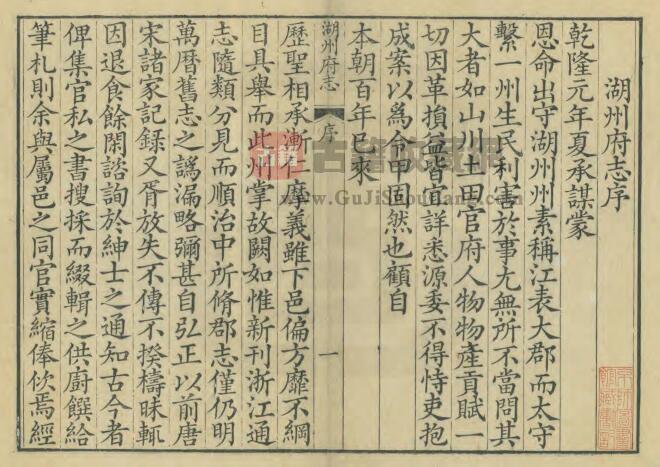 湖州府志序
乾隆元年夏承謀蒙
恩命出守湖州州素稱江表大郡而太守
繫一州生民利害於事尢無所不當問其
大者如山川土田官府人物物產貢賦一
切因革損益皆宜詳悉源委不得恃吏抱
成案以爲令甲固然也顧自
本朝百年已來
湖州府志
序
一
歷聖相承漸仁摩義雖下邑偏方靡不綱
目具舉而此州掌故闕如惟新刊浙江通
志隨類分見而順治中所脩郡志僅仍明
萬曆舊志之譌漏略彌甚自弘正以前唐
宋諸家記録又胥放失不傳不揆檮昧輒
因退食餘閑諮詢於紳士之通知古今者
俾集官私之書搜採而綴輯之供廚饌給
筆札則余與屬邑之同官實縮俸佽焉經
www.GuJiShuFang.com